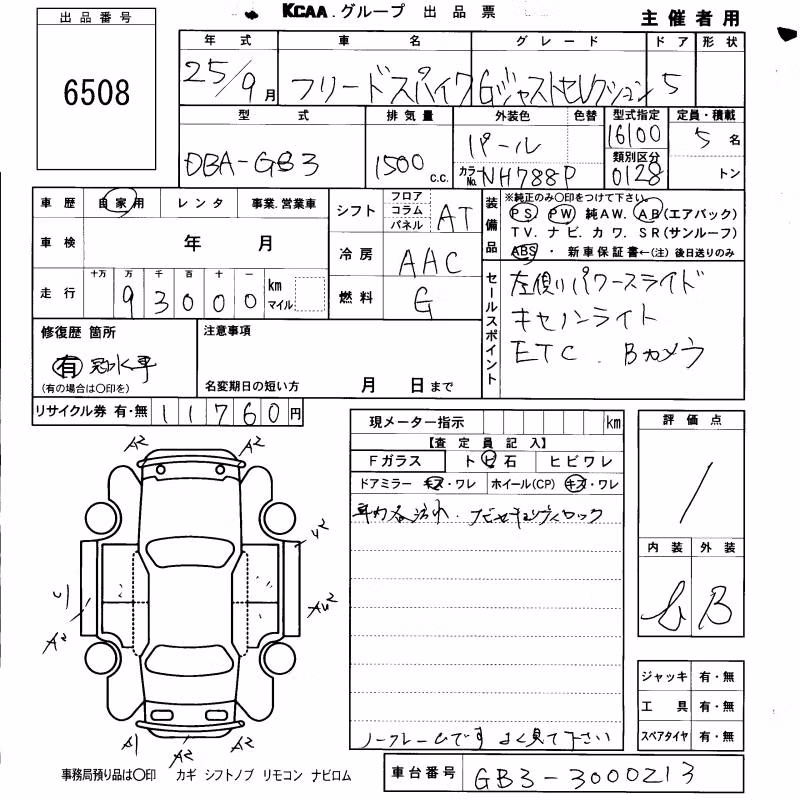 KCAA.グループ 出品票
主催者用
出品番号
6508
年式 車名 グレード ドア 形状
25/9月 フリードスパイク Gジャストセレクション 5
型式 排気量 外装色 色替 型式指定 定員・積載
DBA-GB3 1500 c.c. パール 16100 5名
カラーNo. NH788P 類別区分 0128 トン
車歴 自家用 レンタ 事業.営業車
車検 年 月
走行 十万 万 千 百 十 一 km マイル
93000
シフト フロア コラム パネル AT
冷房 AAC
燃料 G
装備品 ※純正のみ〇印をつけて下さい。
PS PW 純AW. AB(エアバック)
TV.ナビ.カワ.SR(サンルーフ)
ABS・新車保証書←(注)後日送りのみ
セールスポイント
左側パワースライド
キセノンライト
ETC. Bカメラ
修復歴 箇所
有 冠水車
(有の場合は〇印を)
注意事項
名変期日の短い方 月 日まで
リサイクル券 有・無 11760円
現メーター指示 km
【査定員記入】
Fガラス トビ石 ヒビワレ
ドアミラー キズ・ワレ ホイール(CP) キズ・ワレ
車内各汚れ.ナビセキュリティロック
ノークレームです よく見て下さい
評価点
/
内装 外装
B
ジャッキ 有・無
工具 有・無
スペアタイヤ 有・無
A2 A2
A2
A2
A1 A2 A2
事務局預り品は〇印 カギ シフトノブ リモコン ナビロム
車台番号 GB3-3000213